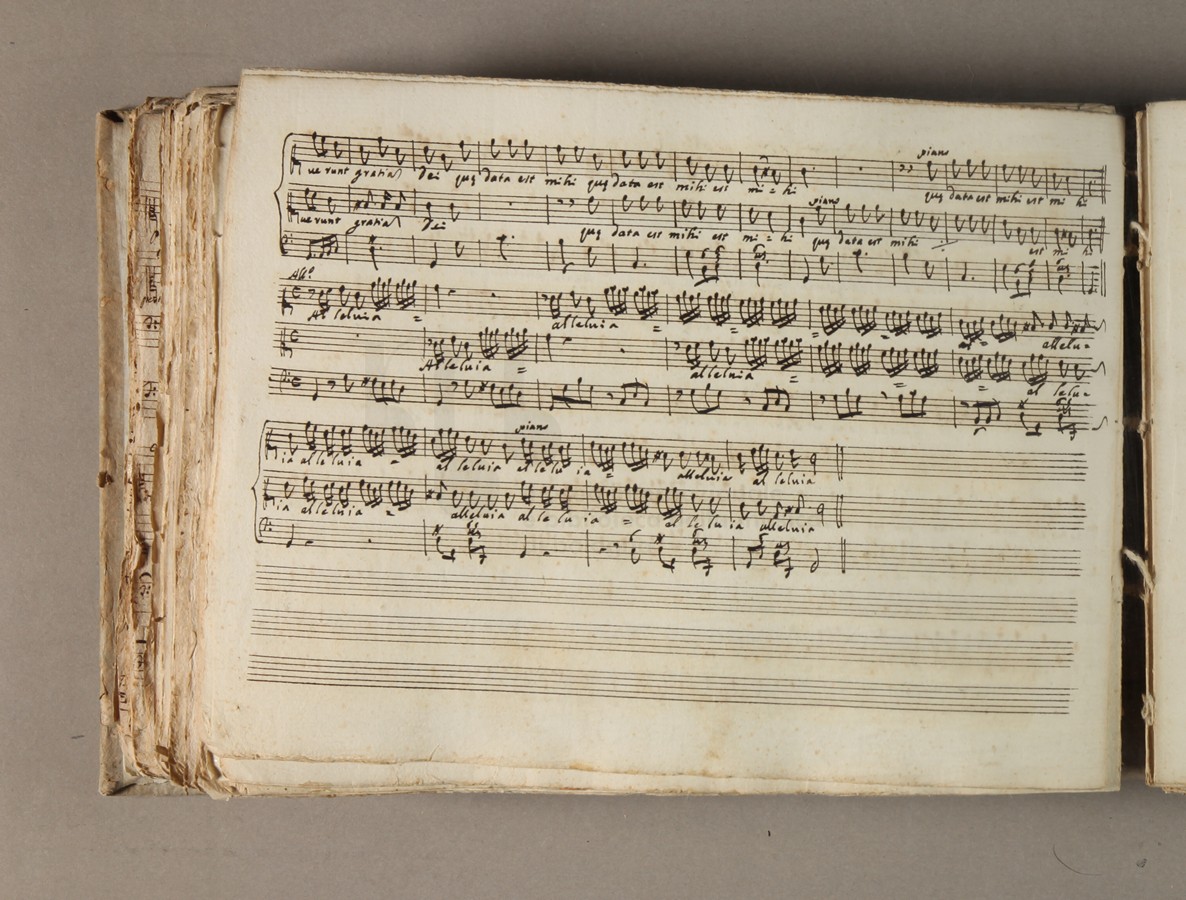 piano
ue runt gratia Dei quę data est mihi quę data est mihi est mi = hi quę data est mihi est mi hi
piano
ue runt gratia Dei quę data est mihi est mi = hi quę data est mihi est mi hi
All.º
Al leluia = alleluia = = = = = allelu=
Al leluia = al leluia = = = al lelu=
piano
ia al le luia = al leluia al le lu ia = alleluia al leluia
ia al le luia = alleluia al le lu ia = al le lu ia alleluia